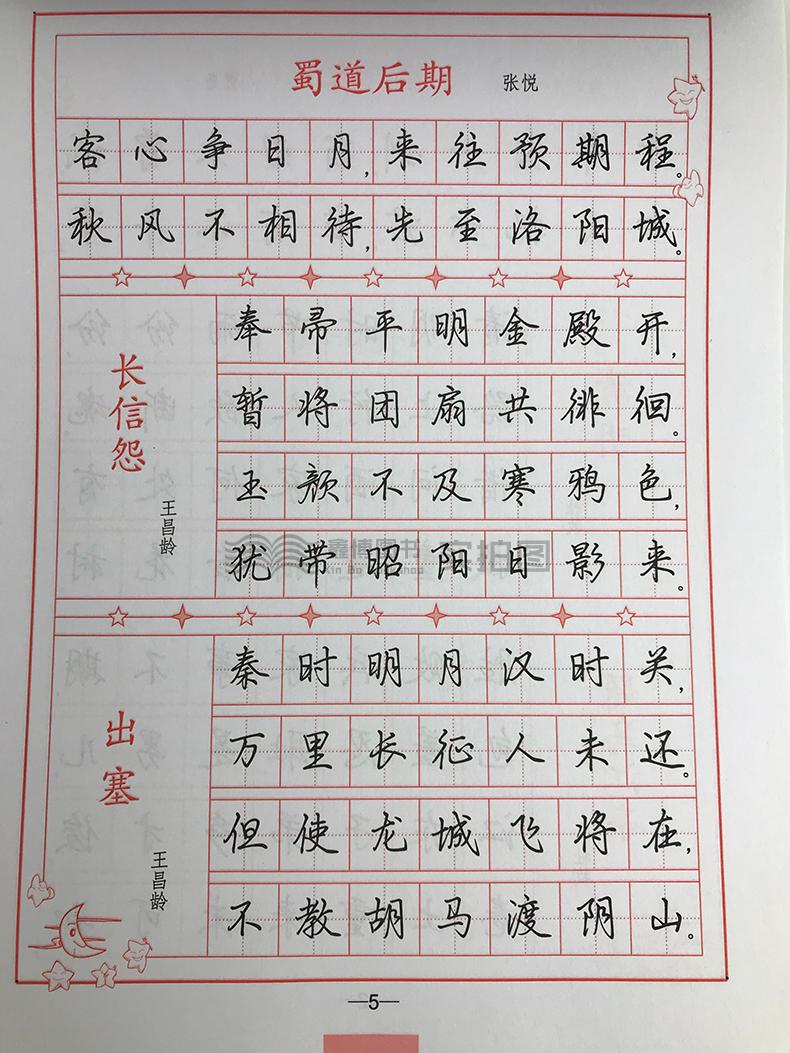 蜀道后期 张悦
客心争日月,来往预期程。
秋风不相待,先至洛阳城。
长信怨
王昌龄
奉帚平明金殿开,
暂将团扇共徘徊。
玉颜不及寒鸦色,
犹带昭阳日影来。
鑫博图书 实拍图
出塞
王昌龄
秦时明月汉时关,
万里长征人未还。
但使龙城飞将在,
不教胡马渡阴山。
—5—